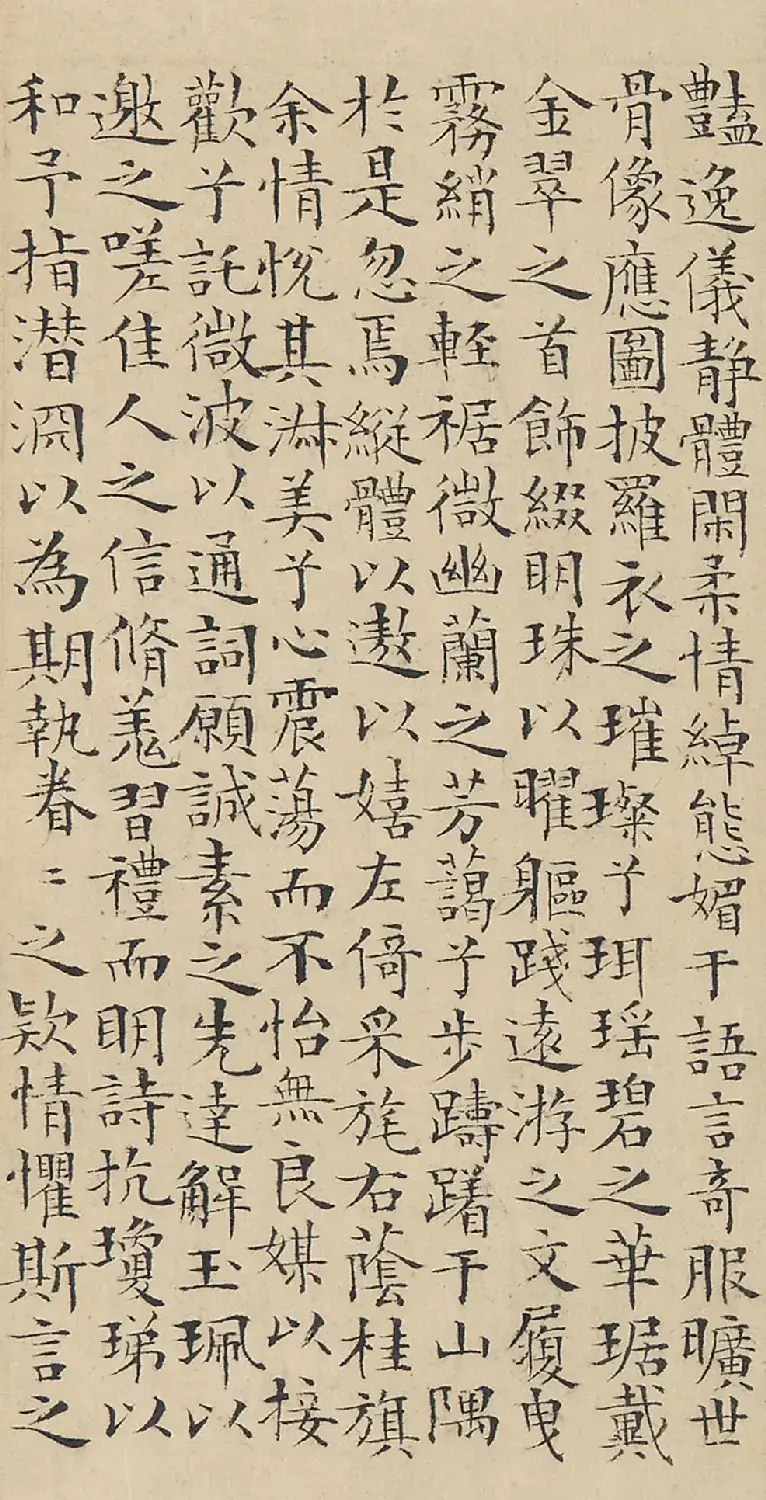 豔逸儀静體閑柔情綽態媚于語言奇服曠世
骨像應圖披羅衣之璀璨兮珥瑶碧之華琚戴
金翠之首飾綴明珠以曜軀踐遠游之文履曳
霧綃之軽裾微幽蘭之芳藹兮步躊躇于山隅
於是忽焉縱體以遨以嬉左倚采旄右蔭桂旗
余情悅其淑美兮心震蕩而不怡無良媒以接
歡兮託微波以通詞願誠素之先達解玉珮以
邀之嗟佳人之信脩羌習禮而明詩抗瓊珶以
和予指潛淵以為期執眷〻之欵情懼斯言之